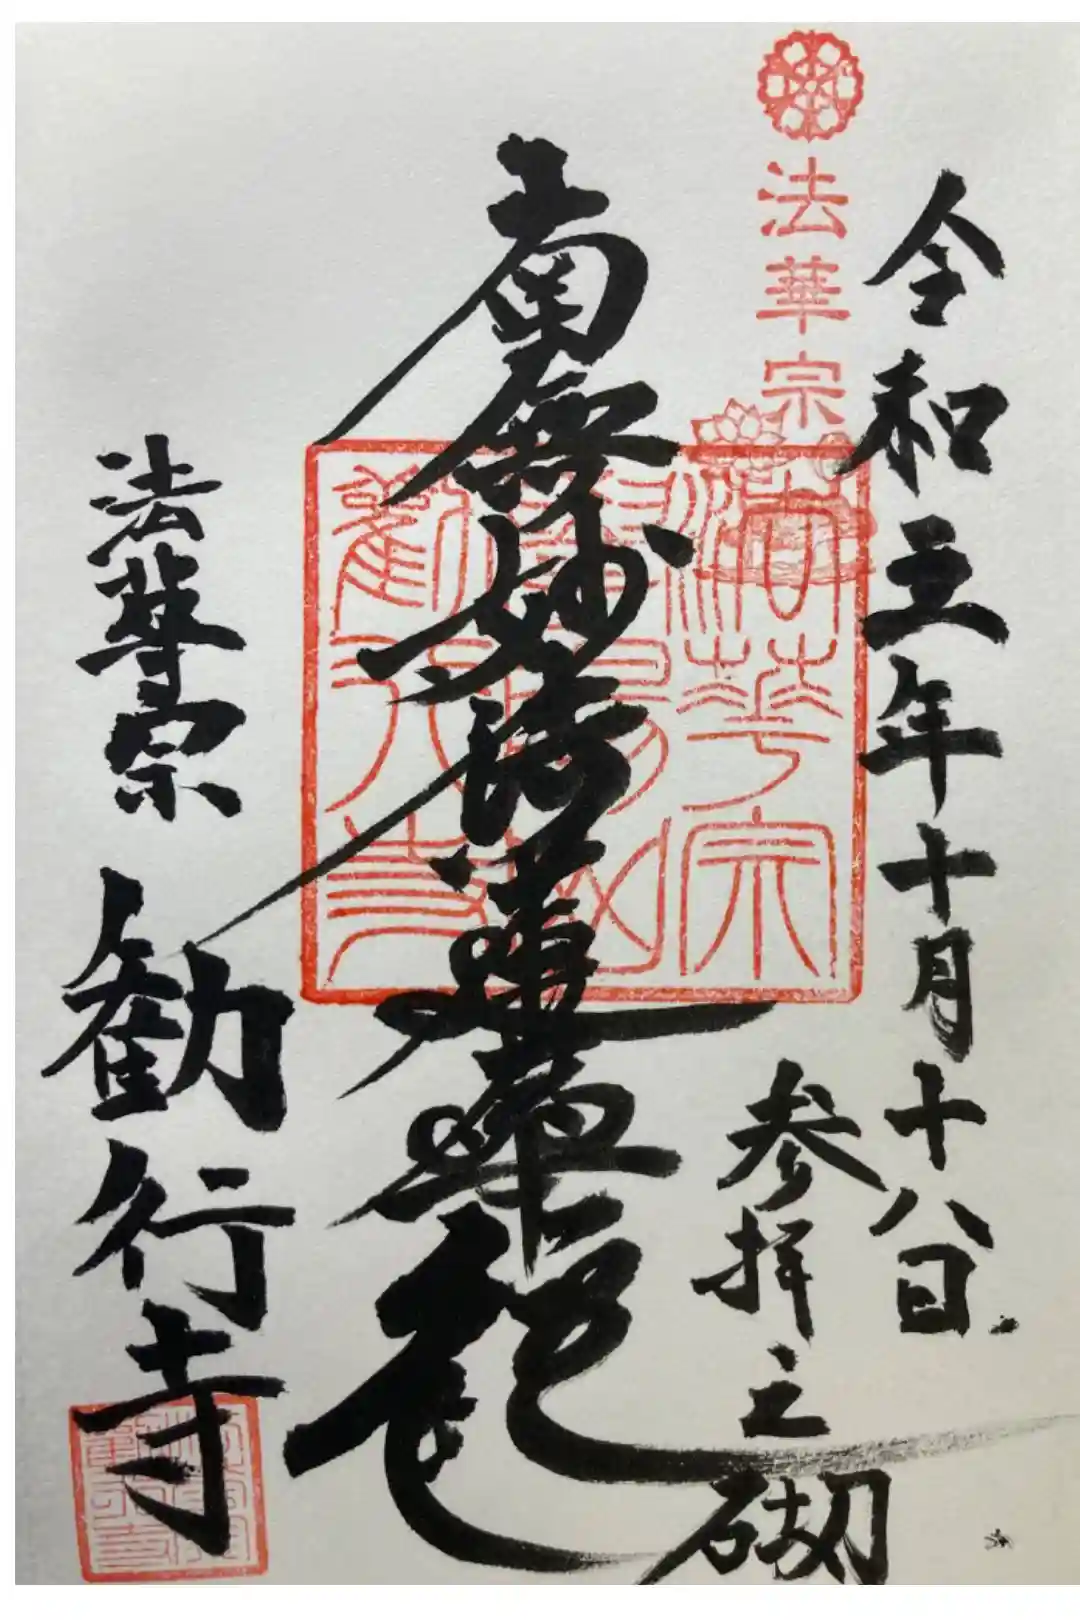 令和五年十月十八日
法華宗
参拝之砌
法華宗
勧行寺
南無妙法蓮華経
法華宗
勧行寺